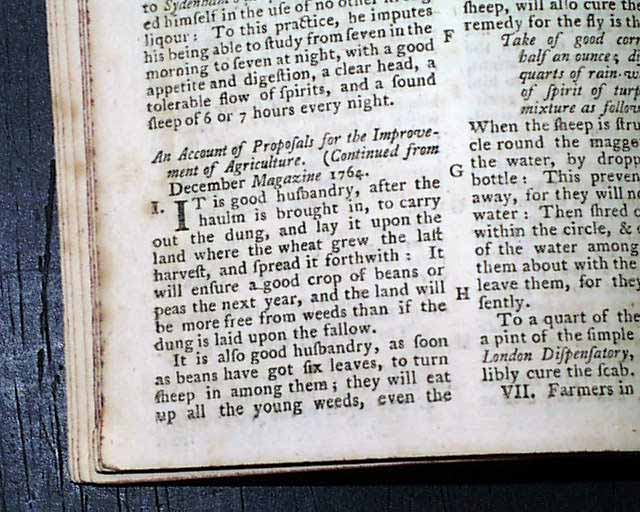 to Sydenham's
ed himself in the uſe of no other
liqour: To this practice, he imputes
his being able to ſtudy from ſeven in the
morning to ſeven at night, with a good
appetite and digeſtion, a clear head, a
tolerable flow of ſpirits, and a ſound
ſleep of 6 or 7 hours every night.
An Account of Propoſals for the Improve-
ment of Agriculture. (Continued from
December Magazine 1764.
I. IT is good huſbandry, after the
haulm is brought in, to carry
out the dung, and lay it upon the
land where the wheat grew the laſt
harveſt, and ſpread it forthwith: It
will enſure a good crop of beans or
peas the next year, and the land will
be more free from weeds than if the
dung is laid upon the fallow.
It is alſo good huſbandry, as ſoon
as beans have got ſix leaves, to turn
ſheep in among them; they will eat
up all the young weeds, even the
F
G
H
ſheep, will alſo cure the
remedy for the fly is th
Take of good corr
half an ounce; di
quarts of rain-w
of ſpirit of turp
mixture as follow
When the ſheep is ſtru
cle round the magge
the water, by dropp
bottle: This preven
away, for they will n
water: Then ſhred
within the circle, &
of the water among
them about with the
leave them, for they
ſently.
To a quart of the
a pint of the ſimple
London Diſpenſatory,
libly cure the ſcab.
VII. Farmers in